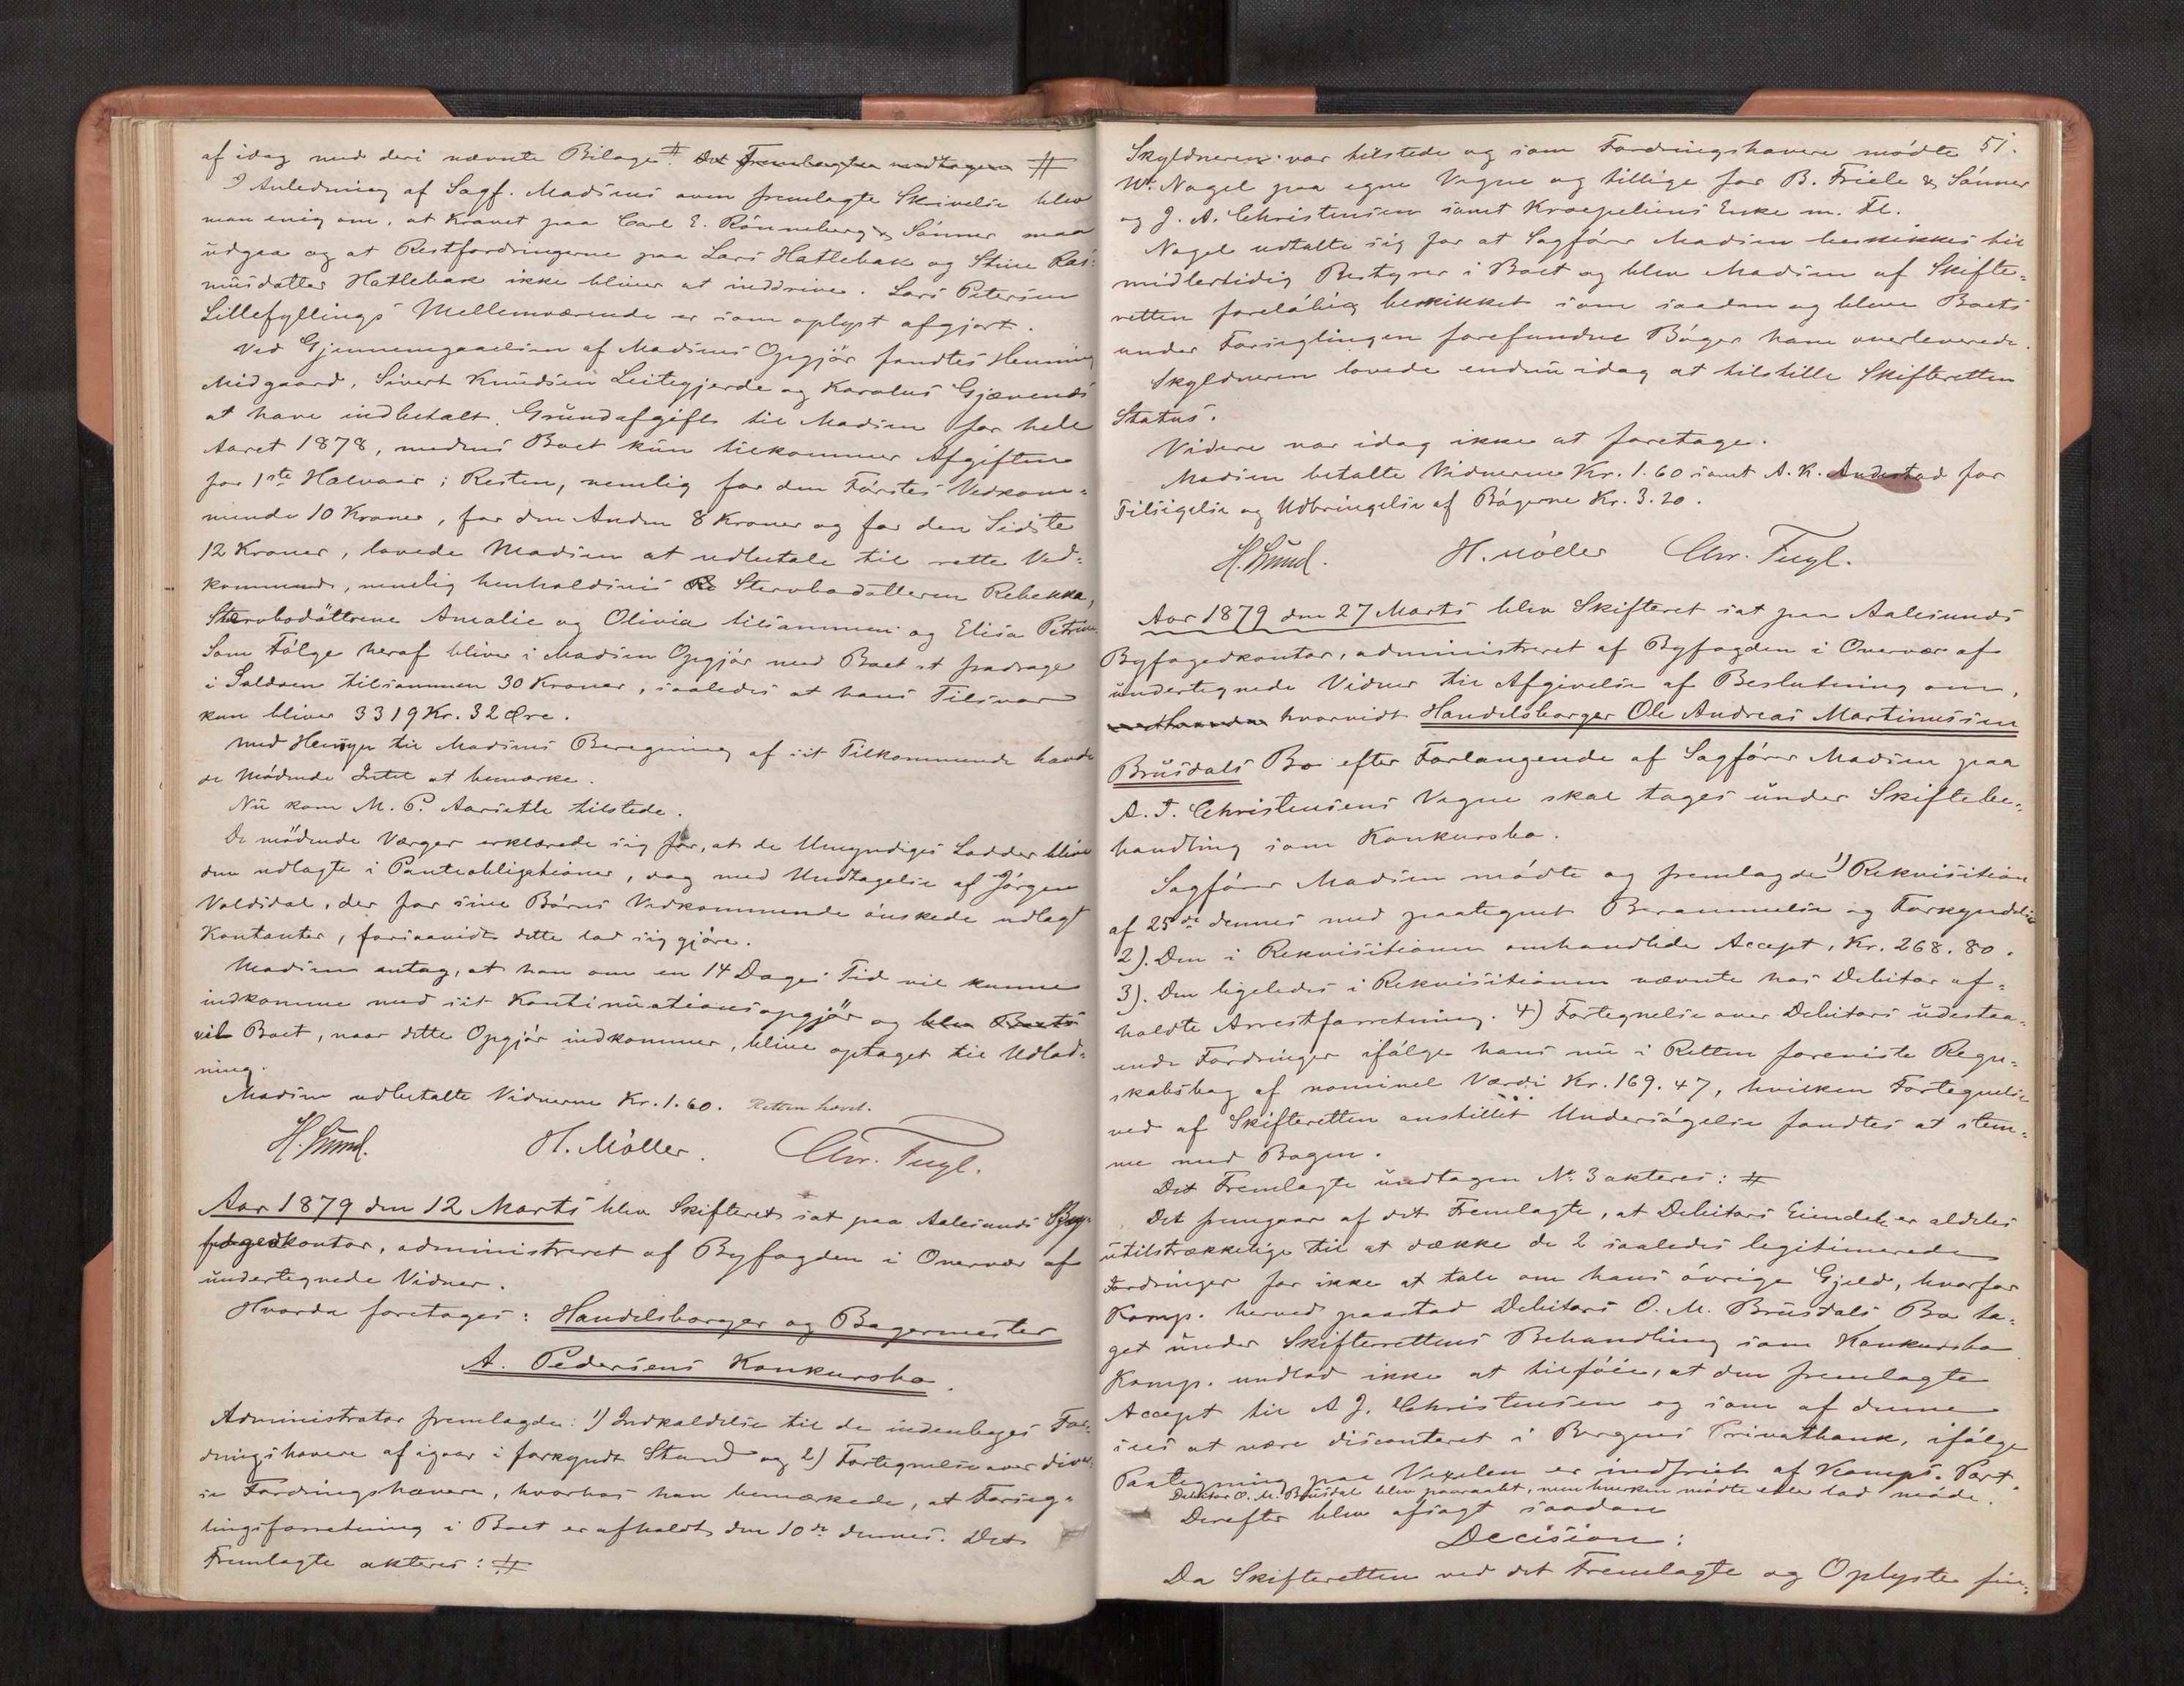 af idag med deri nævnte Bilage # Det Fremlagte modtagen #
I Anledning af Sagf. Madsens oven fremlagte Skrivelse blev
man enig om, at Kravet paa Carl E. Rönneberg & Sönner maa
udgaa og at Restfordringerne paa Lars Hatlebak og Stine Ras-
musdatter Hatlebak ikke bliver at inddrive. Lars Petersen
Lillefyllings Mellemværende er som oplyst afgjort.
Ved Gjennemgaaelsen af Madsens Opgjör fandtes Henning
Midgaard, Sivert Knudsen Leitegjerde og Karolus Gjævenes
at have indbetalt Grundafgift til Madsen for hele
Aaret 1878, medens Boet kun tilkommer Afgiften
for 1ste Halvaar; Resten, nemlig for den Förstes Vedkom-
mende 10 Kroner, for den Anden 8 Kroner og for den Sidste
12 Kroner, lovede Madsen at udbetale til rette Ved-
kommende, nemlig henholdsvis Re Stervbodatteren Rebekka,
Stervbodöttrene Amalie og Olivia tilsammen og Elisa Petrine.
Som Fölge heraf bliver i Madsen Opgjör med Boet at fradrage
i Saldoen tilsammen 30 Kroner, saaledes at hans Tilsvar
kun bliver 3319 Kr. 32 Øre.
Med Hensyn til Madsens Beregning af sit Tilkommende havde
de Mödende Intet at bemærke.
Nu kom M. P. Aarsæthe tilstede.
De mödende Værger erklærede sig for, at de Umyndiges Lodder blive
dem udlagte i Panteobligationer, dog med Undtagelse af Jörgen
Valdidal, der for sine Börns Vedkommende önskede udlagt
Kontanter, forsaavidt dette lod sig gjöre.
Madsen antog, at han om en 14 Dages Tid vil kunne
indkomme med sit Kontinuationsopgjör og blev Boets
vil Boet, naar dette Opgjör indkommer, blive optaget til Udlod-
ning.
Madsen udbetalte Vidnerne Kr. 1.60. Retten hævet.
H. Lund. H. Möller. Chr. Fugl.
Aar 1879 den 12 Marts blev Skifteret sat paa Aalesunds By-
fogedkontor, administreret af Byfogden i Overvær af
undertegnede Vidner.
Hvorda foretages: Handelsborger og Bagermester
A. Pedersens Konkursbo.
Administrator fremlagde: 1) Indkaldelse til de indenbyes For-
dringshavere af igaar i forkyndt Stand og 2) Fortegnelse over diver-
se Fordringshavere, hvorhos han bemærkede, at Forseg-
lingsforretning i Boet er afholdt den 10de dennes. Det
Fremlagte akteres: #
51.
Skyldneren var tilstede og som Fordringshavere mödte
W. Nagel paa egne Vegne og tillige for B. Friele & Sönner
og J. A. Christensen samt Kroepeliens Enke m. Fl.
Nagel udtalte sig for at Sagförer Madsen beskikkes til
midlertidig Bestyrer i Boet og blev Madsen af Skifte-
retten forelöbig beskikket som saadan og bleve Boets
under Forseglingen forefundne Böger ham overleverede.
Skyldneren lovede endnu idag at tilstille Skifteretten
Status.
Videre var idag ikke at foretage.
Madsen betalte Vidnerne Kr. 1.60 samt A. K. Andestad for
Tilsigelse og Udbringelse af Bögerne Kr. 3.20.
H. Lund. H. Möller Chr. Fugl.
Aar 1879 den 27 Marts blev Skifteret sat paa Aalesunds
Byfogedkontor, administreret af Byfogden i Overvær af
undertegnede Vidner til Afgivelse af Beslutning om,
hvorvidt Handelsborger Ole Andreas Martinussen
Brusdals Bo efter Forlangende af Sagförer Madsen paa
A. J. Christensens Vegne skal tages under Skiftebe-
handling som Konkursbo.
Sagförer Madsen mödte og fremlagde 1) Rekvisition
af 25de dennes med paategnet Berammelse og Forkyndelse
2). Den i Rekvisitionen omhandlede Accept, Kr. 268.80.
3). Den ligeledes i Rekvisitionen nævnte hos Debitor af-
holdte Arrestforretning. 4) Fortegnelse over Debitors udestaa-
ende Fordringer ifölge hans nu i Retten foreviste Regn-
skabsbog af nominel Værdi Kr. 169.47, hvilken Fortegnelse
ved af Skifteretten anstillet Undersögelse fandtes at stem-
me med Bogen.
Det Fremlagte undtagen No 3 akteres: #
Det fremgaar af det Fremlagte, at Debitors Eiendele er aldeles
utilstrækkelige til at dække de 2 saaledes legitimerede
Fordringer for ikke at tale om hans övrige Gjeld, hvorfor
Komp. herved paastod Debitors O. M. Brusdals Bo ta-
get under Skifterettens Behandling som Konkursbo.
Komp. undlod ikke at tilföie, at den fremlagte
Accept til A J. Christensen og som af denne
sees at være disconteret i Bergens Privatbank, ifölge
Paategning paa Vexelen er indfriet af Komps. Part.
Debitor O. M. Brusdal blev paaraabt, men hverken mödte eller lod möde.
Derefter blev afsagt saadan
Decision:
Da Skifteretten ved det Fremlagte og Oplyste fin-